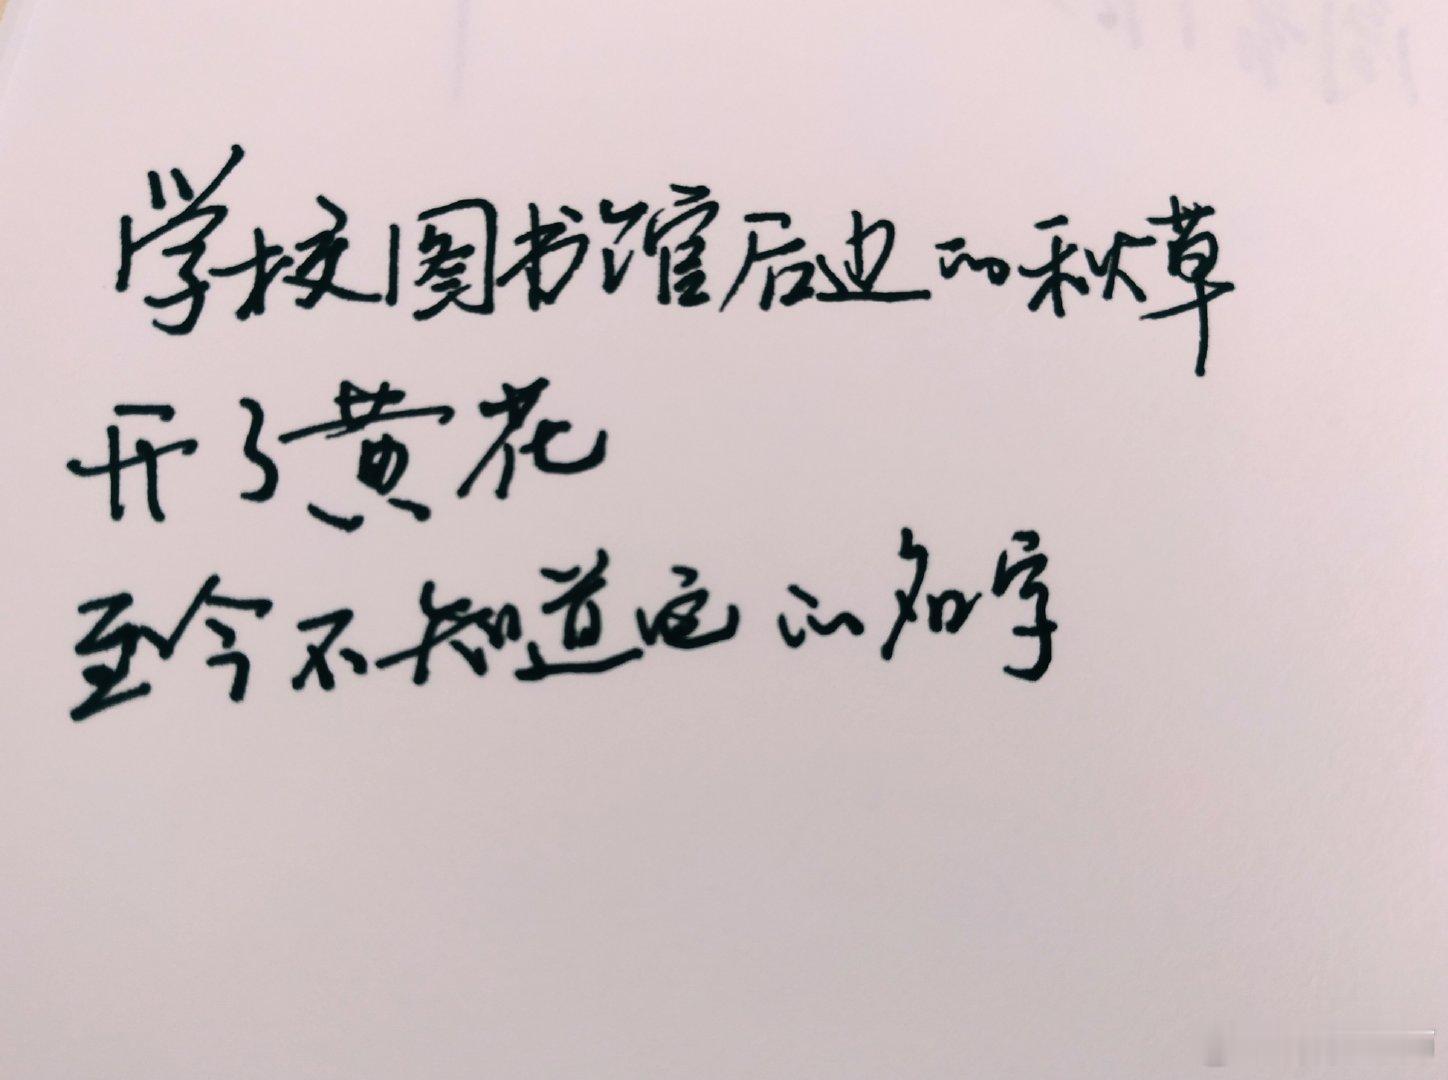 学校图书馆后边的秋草
开了黄花
至今不知道它的名字